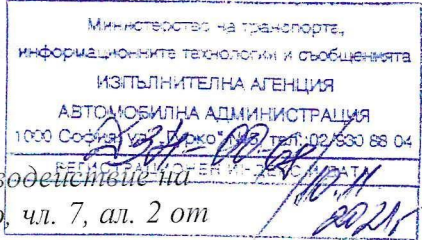 Министерство на транспорта,
информационните технологии и съобщенията
ИЗПЪЛНИТЕЛНА АГЕНЦИЯ
АВТОМОБИЛНА АДМИНИСТРАЦИЯ
1000 София, ул. "Гурко" №5, тел.: 02/930 88 04
РЕГИСТРАЦИОНЕН ИНДЕКС И ДАТА
водействие на
10.11
о, чл. 7, ал. 2 от
2021г